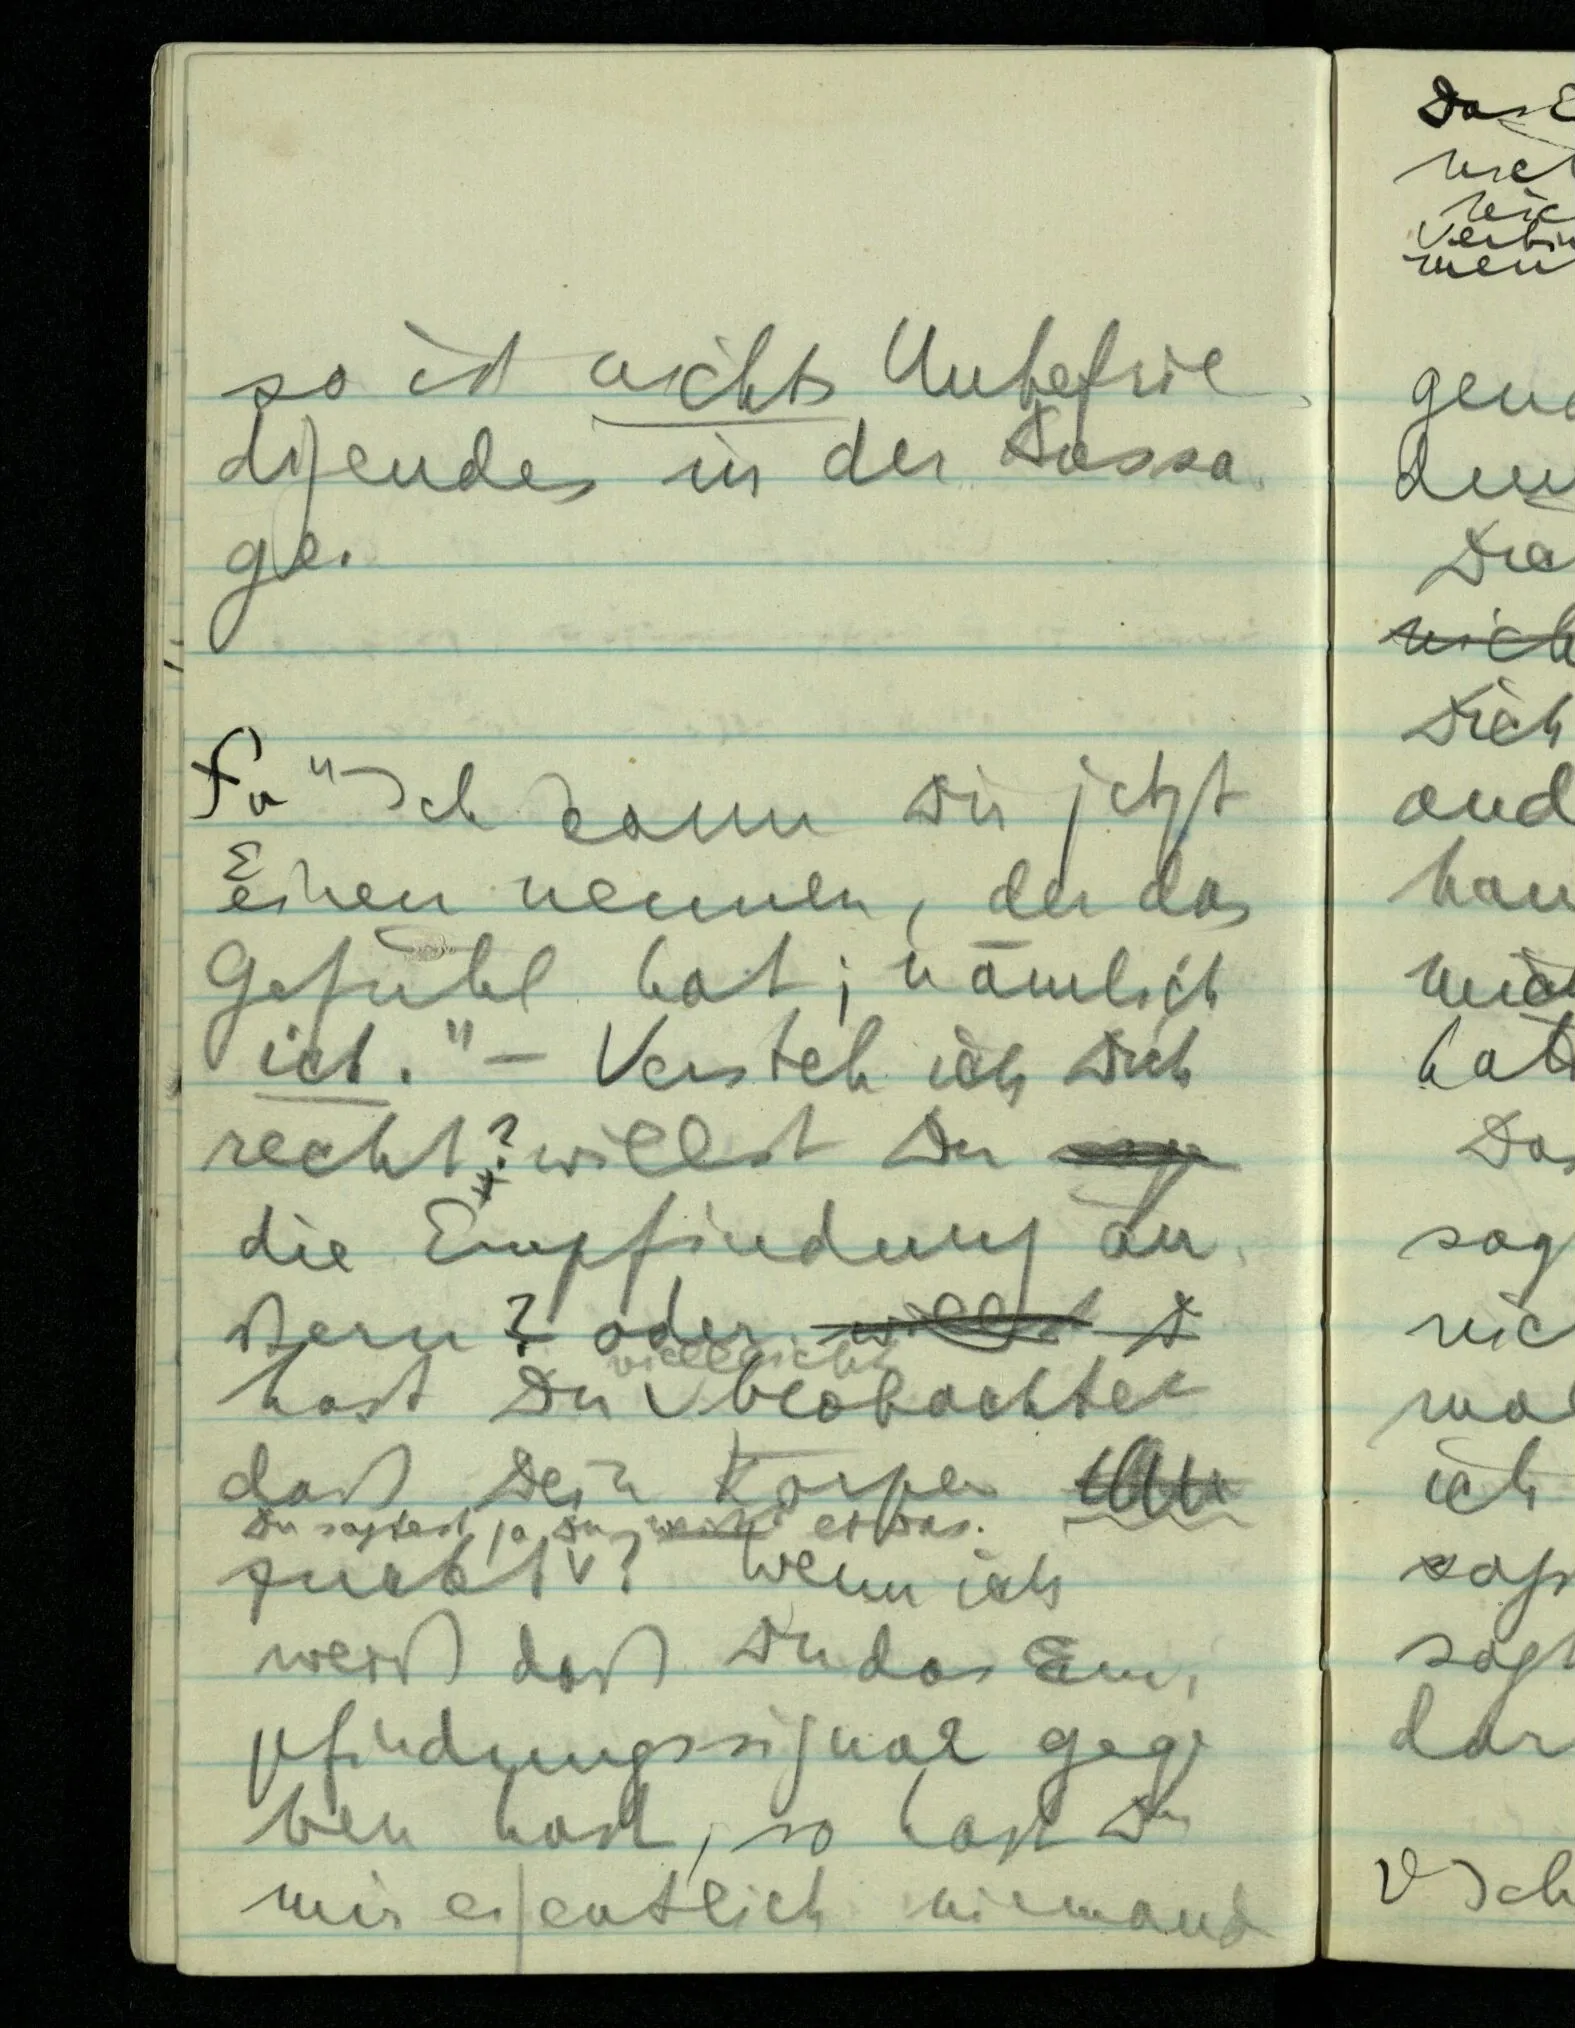 so ist nichts Unbefrie-
digendes in der Aussa-
ge.
"Ich kann Dir jetzt
Einen nennen, der das
Gefühl hat; nämlich
ich." – Versteh ich Dich
recht? willst Du
die Empfindung äu-
ßern? oder willst D
vielleicht
hast Du beobachtet
daß Dein Körper
Du sagtest ja Du etwas.
zuckt? Wenn ich
weiß daß Du das Em-
pfindungssignal gege-
ben hast, so hast Du
mir eigentlich niemand
Das E
nich
Verbin
men
gena
Die
nich
Dich
and
han
hat
Das
sag
nic
mal
ich
sag
sagt
dar
V Ich